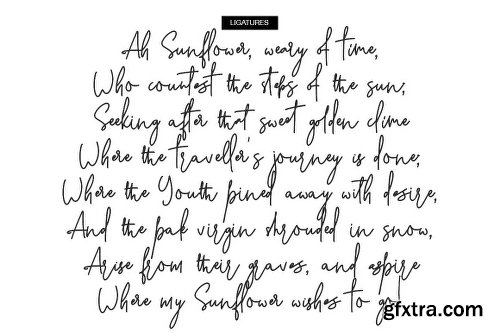 LIGATURES
Ah Sunflower, weary of time,
Who countest the steps of the sun;
Seeking after that sweet golden clime
Where the traveller's journey is done;
Where the Youth pined away with desire,
And the pale virgin shrouded in snow,
Arise from their graves, and aspire
Where my Sunflower wishes to go!
gfxtra.com